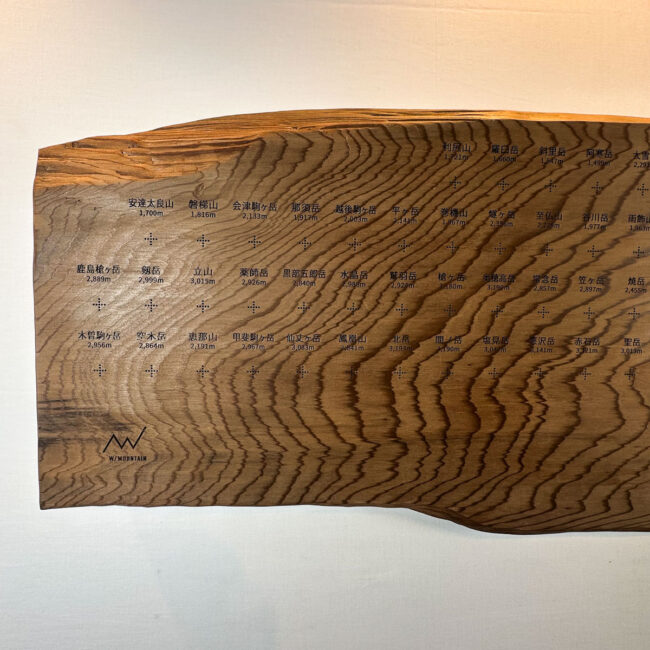 利尻山 羅臼岳 斜里岳 阿寒岳 大雪
1,721m 1,660m 1,547m 1,499m
安達太良山 磐梯山 会津駒ヶ岳 那須岳 越後駒ヶ岳 平ヶ岳 巻機山 燧ヶ岳 至仏山 谷川岳 雨飾山
1,700m 1,816m 2,133m 1,917m 2,003m 2,141m 1,967m 2,356m 2,228m 1,977m 1,963m
鹿島槍ヶ岳 剱岳 立山 薬師岳 黒部五郎岳 水晶岳 鷲羽岳 槍ヶ岳 穂高岳 常念岳 笠ヶ岳 焼岳
2,889m 2,999m 3,015m 2,926m 2,840m 2,986m 2,924m 3,180m 3,190m 2,857m 2,897m 2,455m
木曽駒ヶ岳 空木岳 恵那山 甲斐駒ヶ岳 仙丈ヶ岳 鳳凰山 北岳 間ノ岳 塩見岳 悪沢岳 赤石岳 聖岳
2,956m 2,864m 2,191m 2,967m 3,033m 2,841m 3,193m 3,190m 3,047m 3,141m 3,121m 3,013m
W/MOUNTAIN